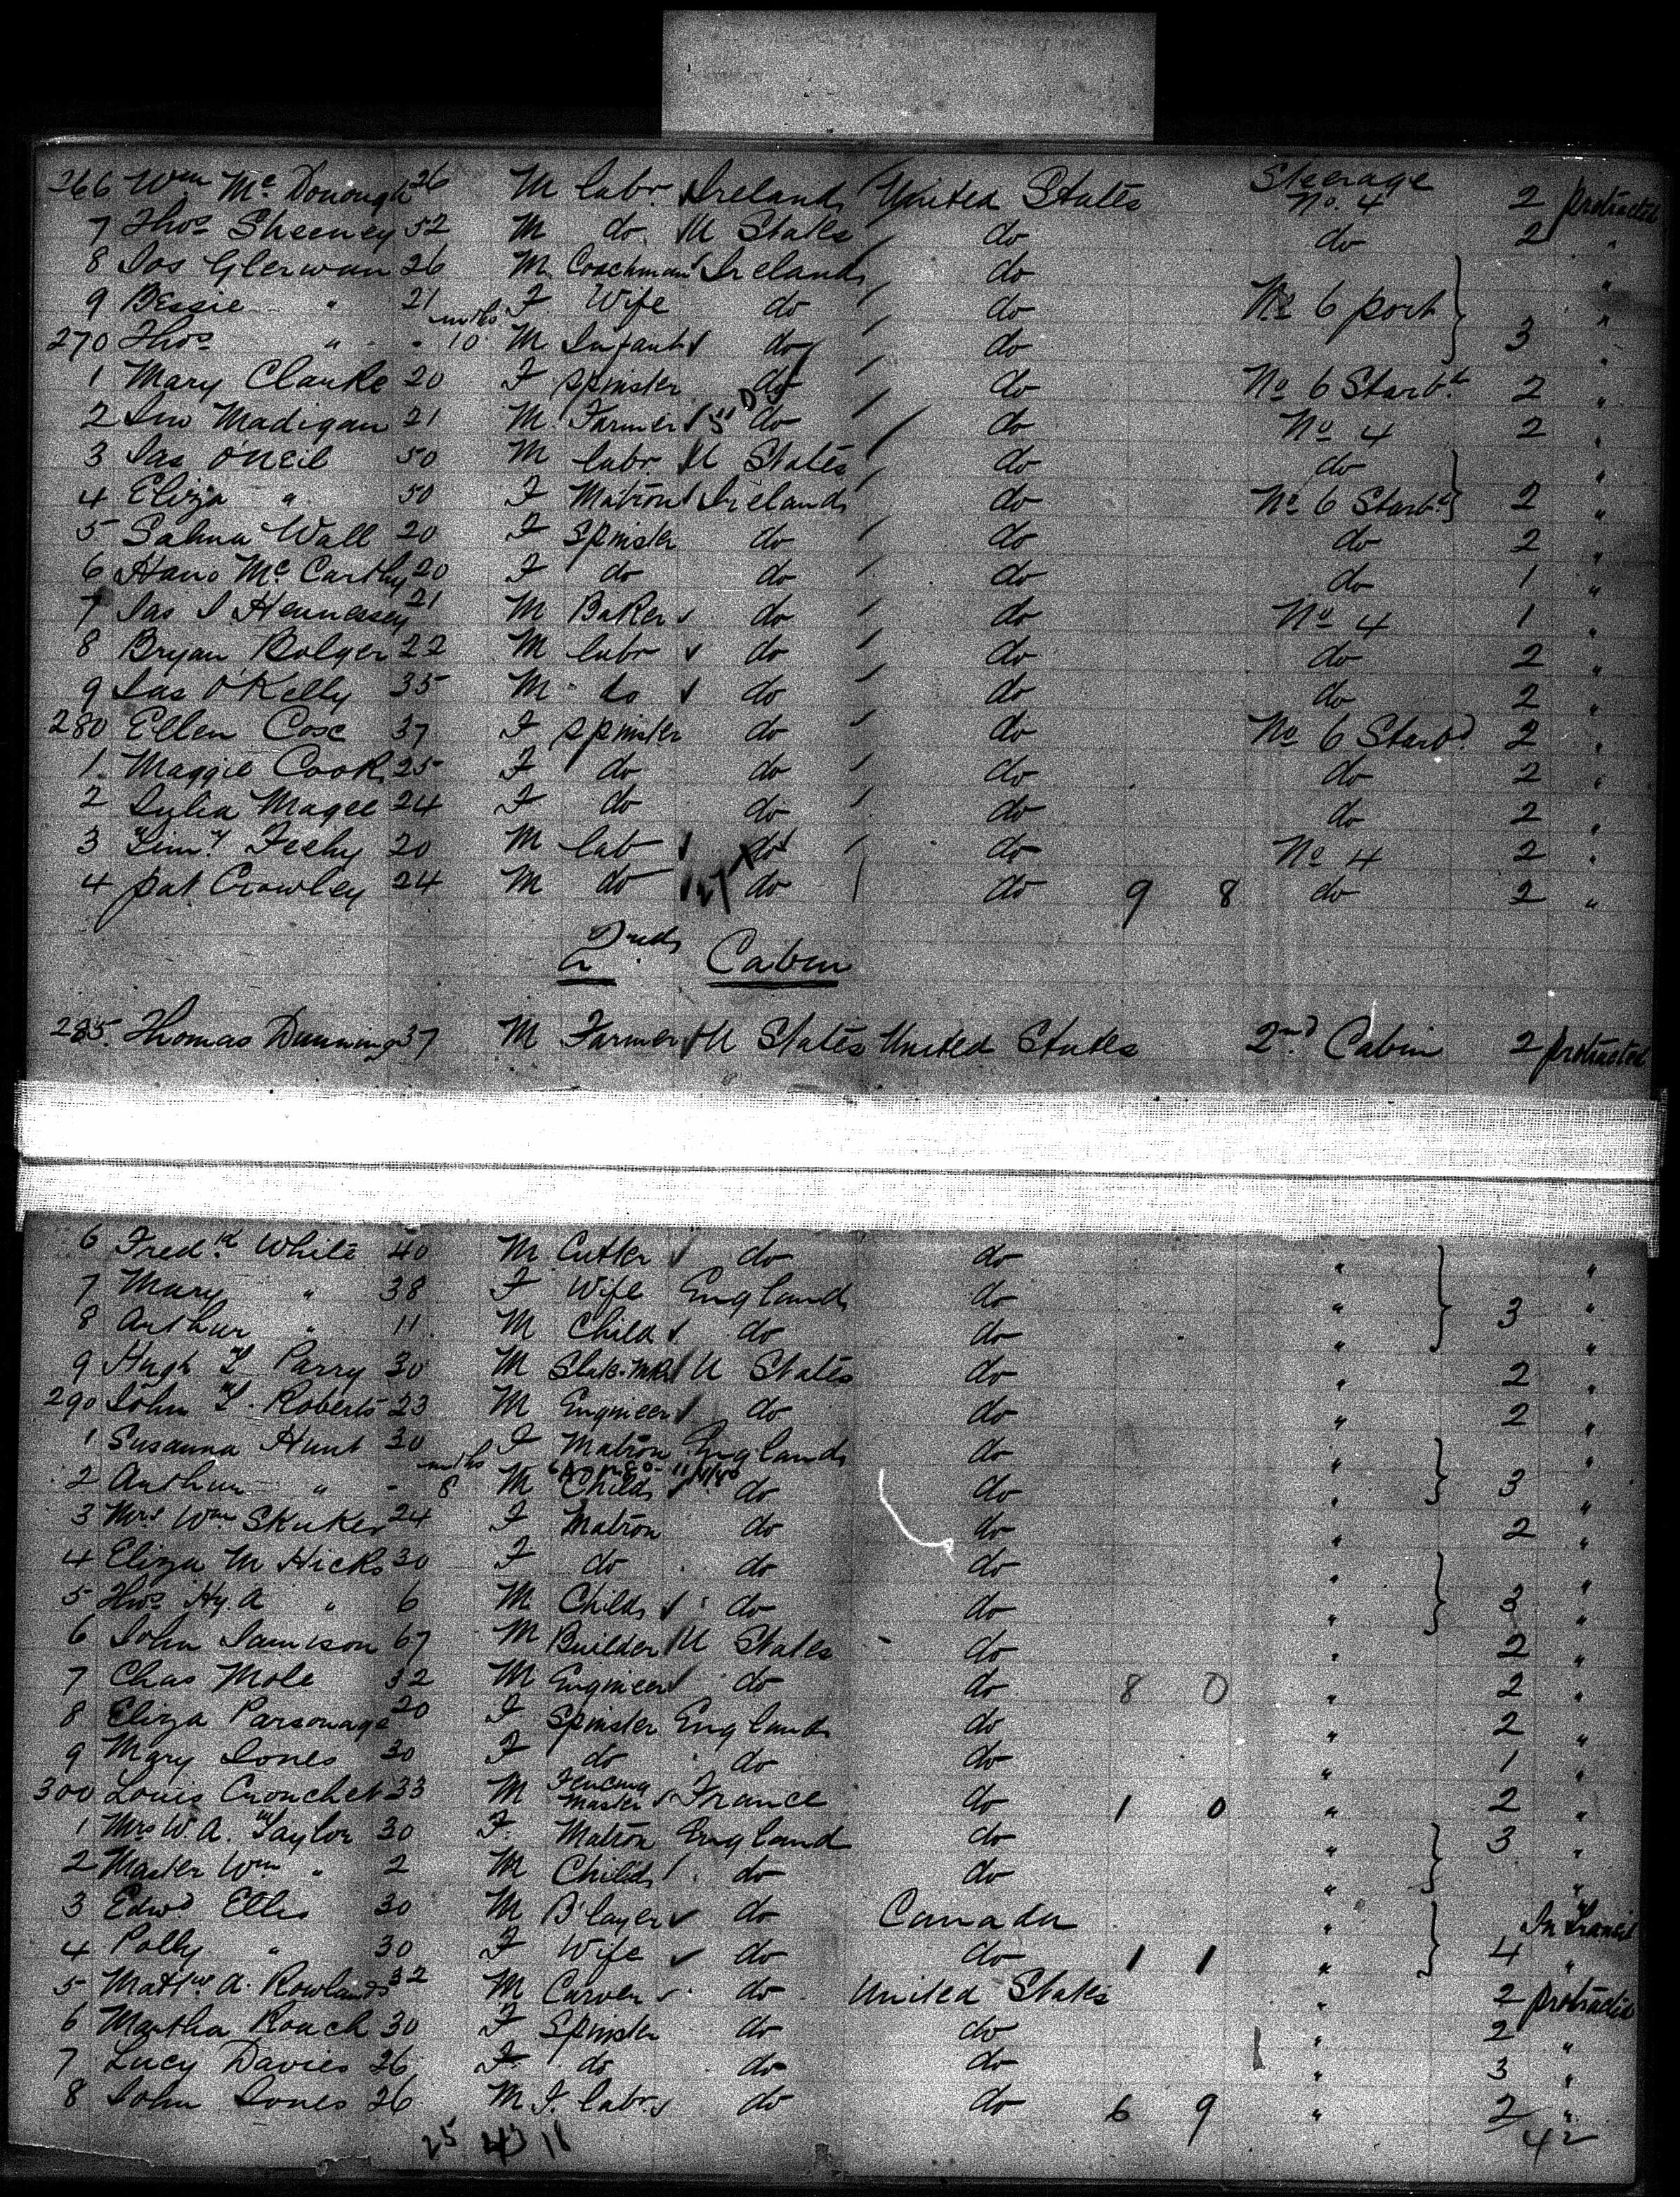 266 Wm Mc Donough 26 M labr. Ireland United States Steerage No. 4 2 protracted
7 Thos Sheeney 52 M do. U States do do 2 "
8 Jas Glerwan 26 M Coachman Ireland do "
9 Bessie " 21 F Wife do do No 6 port "
270 Thos " - mths 10 M Infant do do 3 "
1 Mary Clarke 20 F spinster do do No 6 Starbd 2 "
2 Jno Madigan 21 M Farmer do do No 4 2 "
3 Jas O'Neil 50 M labr. U States do do "
4 Eliza " 50 F Matron Ireland do No 6 Starbd 2 "
5 Wall 20 F Spinster do do do 2 "
6 Mc Carthy 20 F do do do do 1 "
7 Jas J Hennessey 21 M Baker do do No 4 1 "
8 Bryan Bolger 22 M labr do do do 2 "
9 Jas O'Kelly 35 M do do do do 2 "
280 Ellen Cose 37 F spinster do do No 6 Starbd. 2 "
1 Maggie Cook 25 F do do do do 2 "
2 Julia Magee 24 F do do do do 2 "
3 Timy. Feehy 20 M lab do do No 4 2 "
4 pat Crowley 24 M do do do 9 8 do 2 "
2nd Cabin
285. Thomas Dunning 37 M Farmer U States United States 2nd Cabin 2 protracted
6 Fredk White 40 M Cutter do do " "
7 Mary " 38 F Wife England do " 3 "
8 Arthur " 11 M Child do do " "
9 Hugh T Parry 30 M Slate-mkr U States do " 2 "
290 John T. Roberts 23 M Engineer do do " 2 "
1 Susanna Hunt 30 F Matron England do " "
2 Arthur " - mths 8 M Child do do " 3 "
3 Mrs Wm Skuker 24 F Matron do do " 2 "
4 Eliza M Hicks 30 F do do do " "
5 Thos Hy. A " 6 M Child do do " 3 "
6 John Jamison 67 M Builder U States do " 2 "
7 Chas Mole 32 M Engineer do do 8 0 " 2 "
8 Eliza Parsonage 20 F Spinster England do " 2 "
9 Mary Jones 30 F do do do " 1 "
300 Louis Cronchet 33 M Fencing Master France do 1 0 " 2 "
1 Mrs W. A. Taylor 30 F. Matron England do " 3 "
2 Master Wm " 2 M Child do do " "
3 Edwd Ellis 30 M B'layer do Canada " In Transit
4 Polly " 30 F Wife do do 1 1 " 4 "
5 Mattw. A. Rowlands 32 M Carver do United States " 2 protracted
6 Martha Roach 30 F Spinster do do " 2 "
7 Lucy Davies 26 F do do do " 3 "
8 John Jones 26 M F. labr. do do 6 9 " 2 "
25 43 18 42